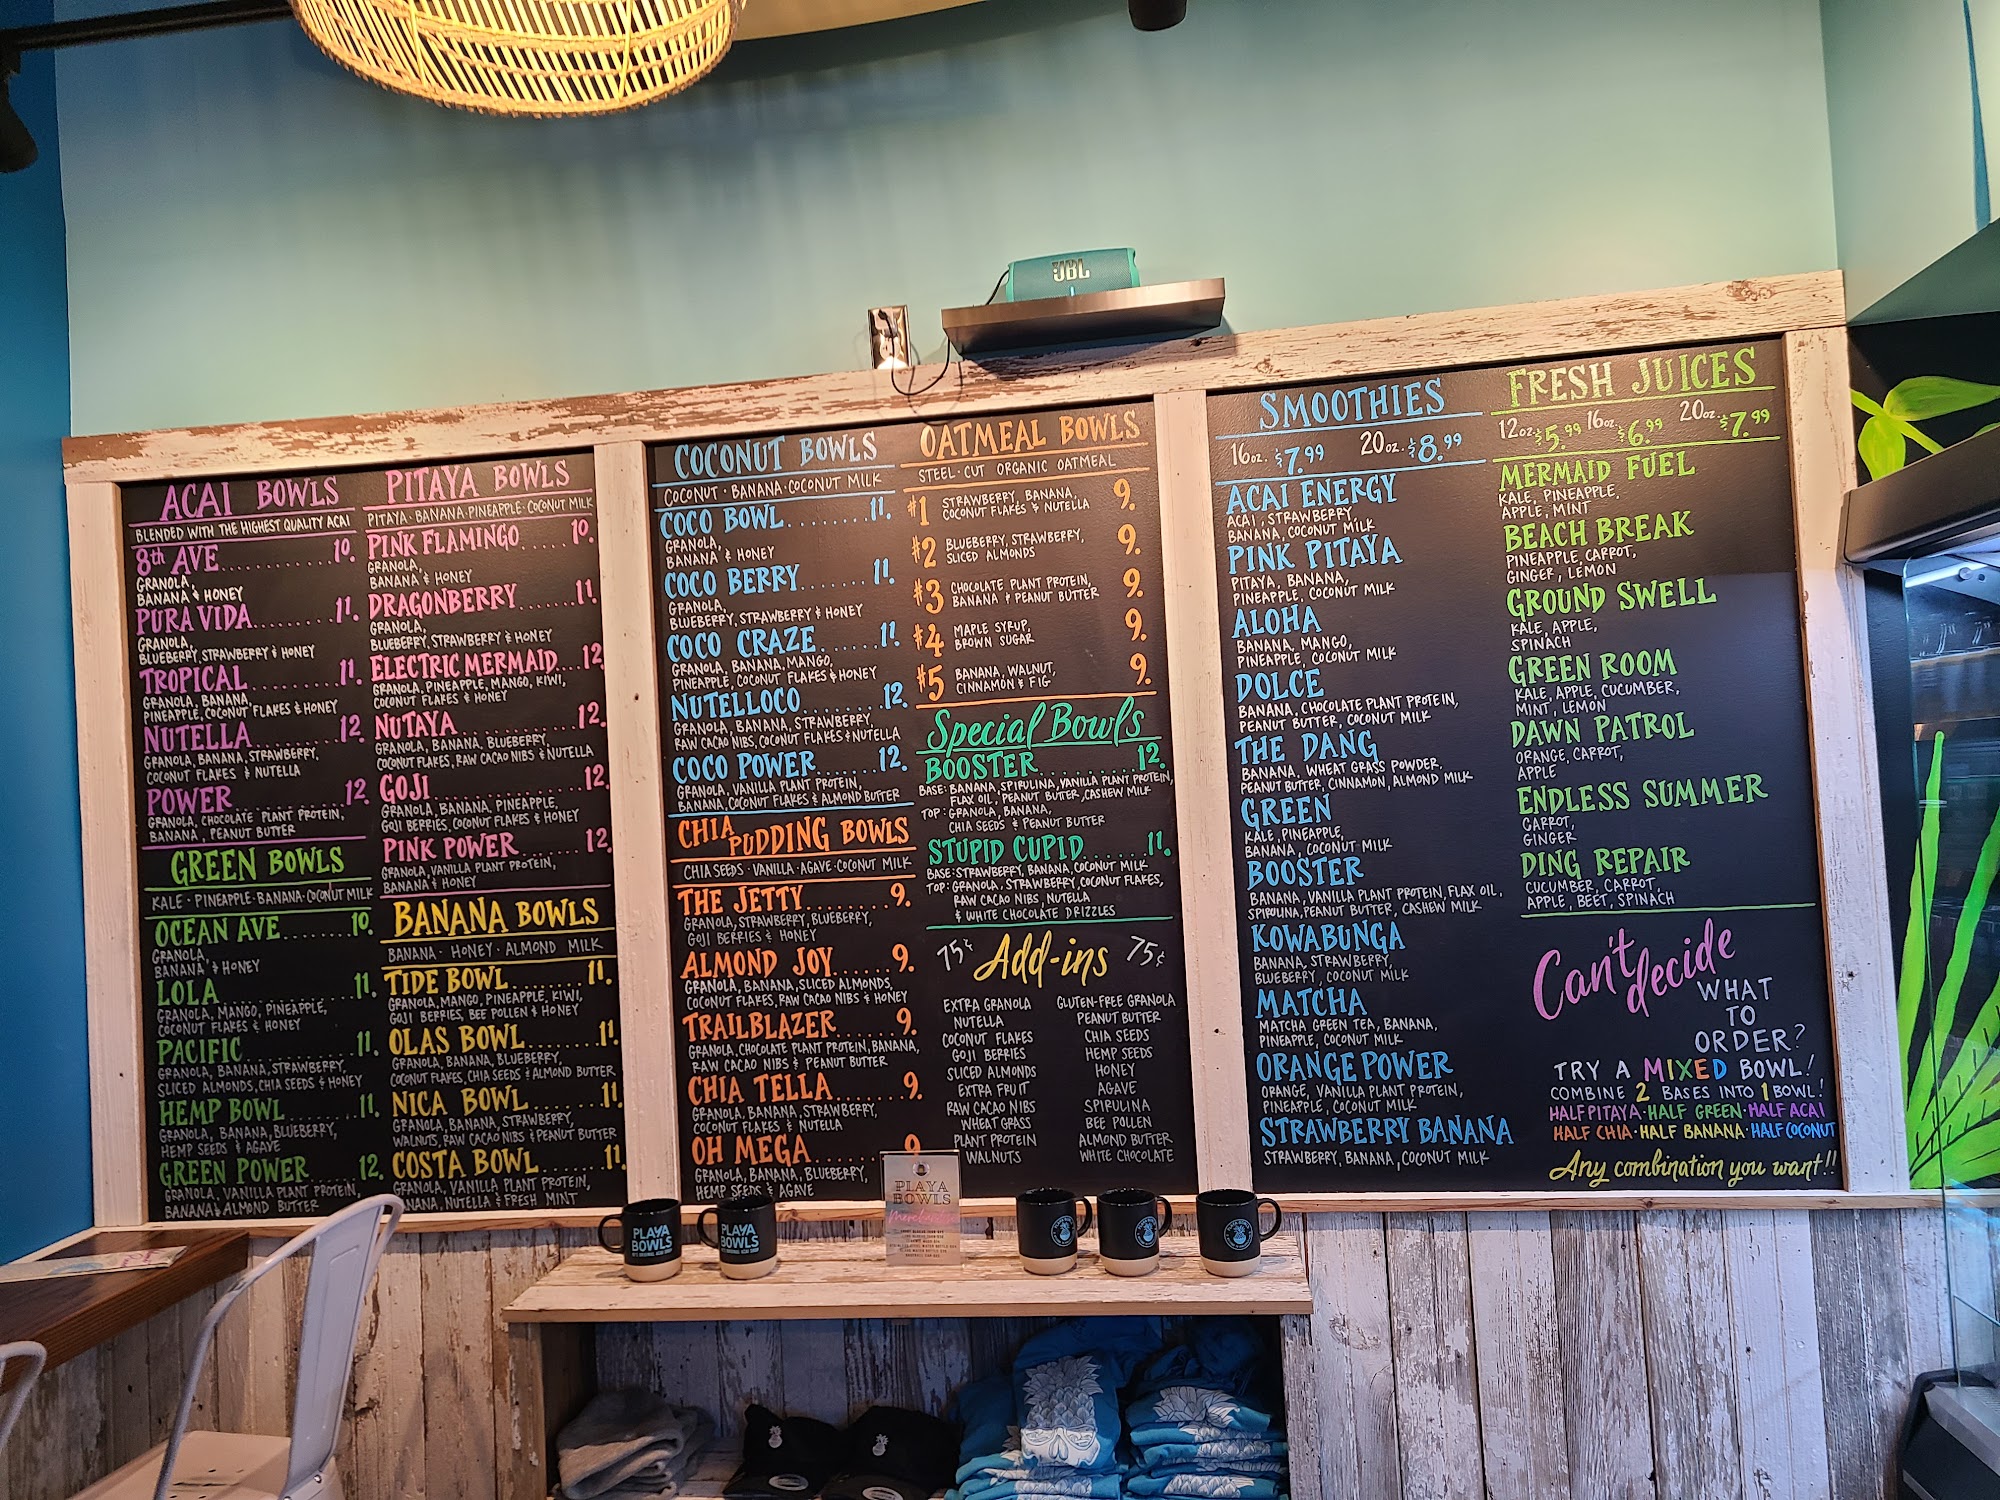 JBL
ACAI BOWLS
BLENDED WITH THE HIGHEST QUALITY ACAI
8th AVE........10.
GRANOLA,
BANANA & HONEY
PURA VIDA........11.
GRANOLA,
BLUEBERRY, STRAWBERRY & HONEY
TROPICAL........11.
GRANOLA, BANANA,
PINEAPPLE, COCONUT FLAKES & HONEY
NUTELLA........12.
GRANOLA, BANANA, STRAWBERRY,
COCONUT FLAKES & NUTELLA
POWER........12.
GRANOLA, CHOCOLATE PLANT PROTEIN,
BANANA, PEANUT BUTTER
GREEN BOWLS
KALE · PINEAPPLE · BANANA · COCONUT MILK
OCEAN AVE........10.
GRANOLA,
BANANA & HONEY
LOLA........11.
GRANOLA, MANGO, PINEAPPLE,
COCONUT FLAKES & HONEY
PACIFIC........11.
GRANOLA, BANANA, STRAWBERRY,
SLICED ALMONDS, CHIA SEEDS & HONEY
HEMP BOWL......11.
GRANOLA, BANANA, BLUEBERRY,
HEMP SEEDS & AGAVE
GREEN POWER.....12.
GRANOLA, VANILLA PLANT PROTEIN,
BANANA & ALMOND BUTTER
PITAYA BOWLS
PITAYA · BANANA · PINEAPPLE · COCONUT MILK
PINK FLAMINGO.....10.
GRANOLA,
BANANA & HONEY
DRAGONBERRY......11.
GRANOLA,
BLUEBERRY, STRAWBERRY & HONEY
ELECTRIC MERMAID...12.
GRANOLA, PINEAPPLE, MANGO, KIWI,
COCONUT FLAKES & HONEY
NUTAYA........12.
GRANOLA, BANANA, BLUEBERRY,
COCONUT FLAKES, RAW CACAO NIBS & NUTELLA
GOJI........12.
GRANOLA, BANANA, PINEAPPLE,
GOJI BERRIES, COCONUT FLAKES & HONEY
PINK POWER......12.
GRANOLA, VANILLA PLANT PROTEIN,
BANANA & HONEY
BANANA BOWLS
BANANA · HONEY · ALMOND MILK
TIDE BOWL......11.
GRANOLA, MANGO, PINEAPPLE, KIWI,
GOJI BERRIES, BEE POLLEN & HONEY
OLAS BOWL......11.
GRANOLA, BANANA, BLUEBERRY,
COCONUT FLAKES, CHIA SEEDS & ALMOND BUTTER
NICA BOWL......11.
GRANOLA, BANANA, STRAWBERRY,
WALNUTS, RAW CACAO NIBS & PEANUT BUTTER
COSTA BOWL......11.
GRANOLA, VANILLA PLANT PROTEIN,
BANANA, NUTELLA & FRESH MINT
COCONUT BOWLS
COCONUT · BANANA · COCONUT MILK
COCO BOWL........11.
GRANOLA,
BANANA & HONEY
COCO BERRY.......11.
GRANOLA,
BLUEBERRY, STRAWBERRY & HONEY
COCO CRAZE......11.
GRANOLA, BANANA, MANGO,
PINEAPPLE, COCONUT FLAKES & HONEY
NUTELLOCO.......12.
GRANOLA, BANANA, STRAWBERRY,
RAW CACAO NIBS, COCONUT FLAKES & NUTELLA
COCO POWER......12.
GRANOLA, VANILLA PLANT PROTEIN,
BANANA, COCONUT FLAKES & ALMOND BUTTER
CHIA PUDDING BOWLS
CHIA SEEDS · VANILLA · AGAVE · COCONUT MILK
THE JETTY........9.
GRANOLA, STRAWBERRY, BLUEBERRY,
GOJI BERRIES & HONEY
ALMOND JOY......9.
GRANOLA, BANANA, SLICED ALMONDS,
COCONUT FLAKES, RAW CACAO NIBS & HONEY
TRAILBLAZER......9.
GRANOLA, CHOCOLATE PLANT PROTEIN, BANANA,
RAW CACAO NIBS & PEANUT BUTTER
CHIA TELLA.......9.
GRANOLA, BANANA, STRAWBERRY,
COCONUT FLAKES & NUTELLA
OH MEGA........9.
GRANOLA, BANANA, BLUEBERRY,
HEMP SEEDS & AGAVE
OATMEAL BOWLS
STEEL-CUT ORGANIC OATMEAL
#1 STRAWBERRY, BANANA, 9.
COCONUT FLAKES & NUTELLA
#2 BLUEBERRY, STRAWBERRY, 9.
SLICED ALMONDS
#3 CHOCOLATE PLANT PROTEIN, 9.
BANANA & PEANUT BUTTER
#4 MAPLE SYRUP, 9.
BROWN SUGAR
#5 BANANA, WALNUT, 9.
CINNAMON & FIG
Special Bowls
BOOSTER........12.
BASE: BANANA, SPIRULINA, VANILLA PLANT PROTEIN,
FLAX OIL, PEANUT BUTTER, CASHEW MILK
TOP: GRANOLA, BANANA,
CHIA SEEDS & PEANUT BUTTER
STUPID CUPID......11.
BASE: STRAWBERRY, BANANA, COCONUT MILK
TOP: GRANOLA, STRAWBERRY, COCONUT FLAKES,
RAW CACAO NIBS, NUTELLA
& WHITE CHOCOLATE DRIZZLES
75¢ Add-ins 75¢
EXTRA GRANOLA
NUTELLA
COCONUT FLAKES
GOJI BERRIES
SLICED ALMONDS
EXTRA FRUIT
RAW CACAO NIBS
WHEAT GRASS
PLANT PROTEIN
WALNUTS
GLUTEN-FREE GRANOLA
PEANUT BUTTER
CHIA SEEDS
HEMP SEEDS
HONEY
AGAVE
SPIRULINA
BEE POLLEN
ALMOND BUTTER
WHITE CHOCOLATE
SMOOTHIES
16oz. $7.99 20oz. $8.99
ACAI ENERGY
ACAI, STRAWBERRY,
BANANA, COCONUT MILK
PINK PITAYA
PITAYA, BANANA,
PINEAPPLE, COCONUT MILK
ALOHA
BANANA, MANGO,
PINEAPPLE, COCONUT MILK
DOLCE
BANANA, CHOCOLATE PLANT PROTEIN,
PEANUT BUTTER, COCONUT MILK
THE DANG
BANANA, WHEAT GRASS POWDER,
PEANUT BUTTER, CINNAMON, ALMOND MILK
GREEN
KALE, PINEAPPLE,
BANANA, COCONUT MILK
BOOSTER
BANANA, VANILLA PLANT PROTEIN, FLAX OIL,
SPIRULINA, PEANUT BUTTER, CASHEW MILK
KOWABUNGA
BANANA, STRAWBERRY,
BLUEBERRY, COCONUT MILK
MATCHA
MATCHA GREEN TEA, BANANA,
PINEAPPLE, COCONUT MILK
ORANGE POWER
ORANGE, VANILLA PLANT PROTEIN,
PINEAPPLE, COCONUT MILK
STRAWBERRY BANANA
STRAWBERRY, BANANA, COCONUT MILK
FRESH JUICES
12oz. $5.99 16oz. $6.99 20oz. $7.99
MERMAID FUEL
KALE, PINEAPPLE,
APPLE, MINT
BEACH BREAK
PINEAPPLE, CARROT,
GINGER, LEMON
GROUND SWELL
KALE, APPLE,
SPINACH
GREEN ROOM
KALE, APPLE, CUCUMBER,
MINT, LEMON
DAWN PATROL
ORANGE, CARROT,
APPLE
ENDLESS SUMMER
CARROT,
GINGER
DING REPAIR
CUCUMBER, CARROT,
APPLE, BEET, SPINACH
Can't decide
WHAT
TO
ORDER?
TRY A MIXED BOWL!
COMBINE 2 BASES INTO 1 BOWL!
HALF PITAYA · HALF GREEN · HALF ACAI
HALF CHIA · HALF BANANA · HALF COCONUT
Any combination you want!!
PLAYA
BOWLS
PLAYA
BOWLS
PLAYA
BOWLS